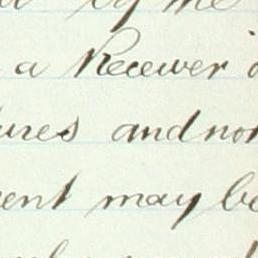 by me
a Receiver
ures and non
ent may be